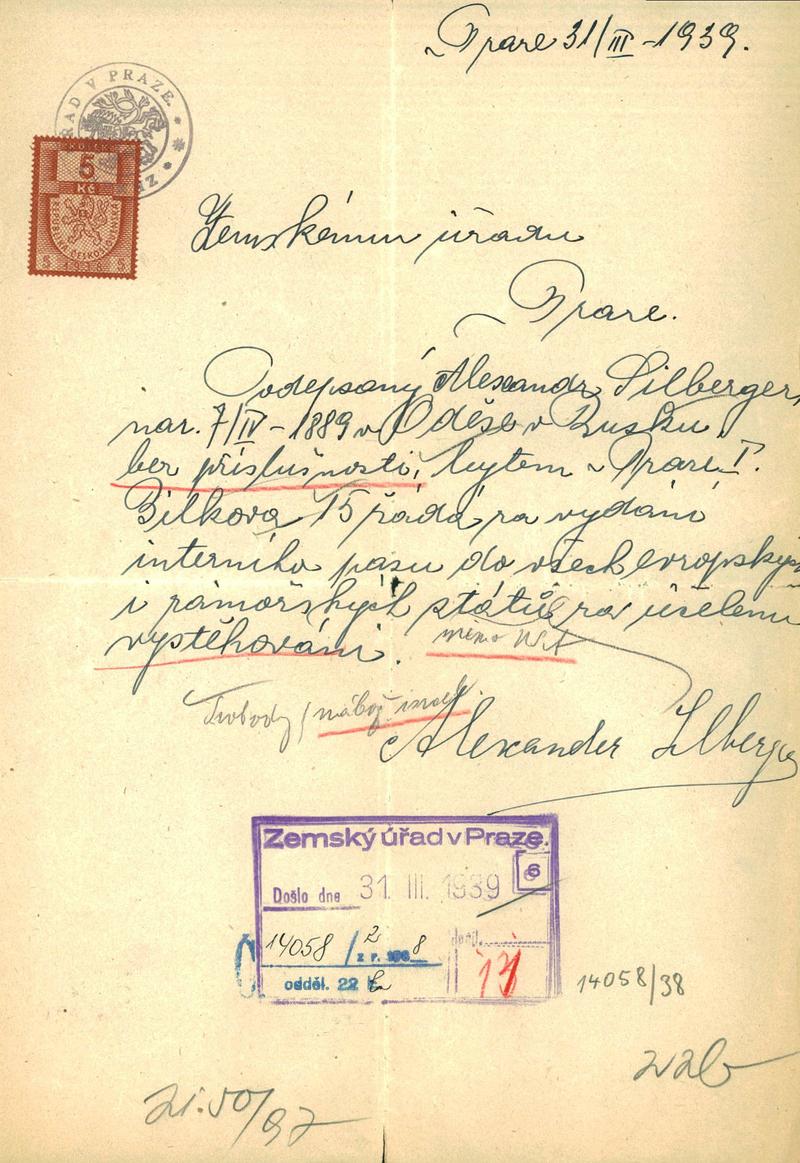 v Praze 31/III - 1939.
ÚŘAD V PRAZE
5
Kč
Zemskému úřadu
v Praze.
Podepsaný Alexandr Silberger,
nar. 7/IV - 1889 v Oděse v Rusku,
bez příslušnosti, bytem v Praze I.
Bílkova 15 žádá za vydání
interního pasu do všech evropských
i zámořských států za účelem
vystěhování.
mimo
Svobodný / nábož. israel.
Alexander Silberger
Zemský úřad v Praze.
6
Došlo dne 31. III. 1939
14058 / 2 z r. 1938
odděl. 22
14058/38